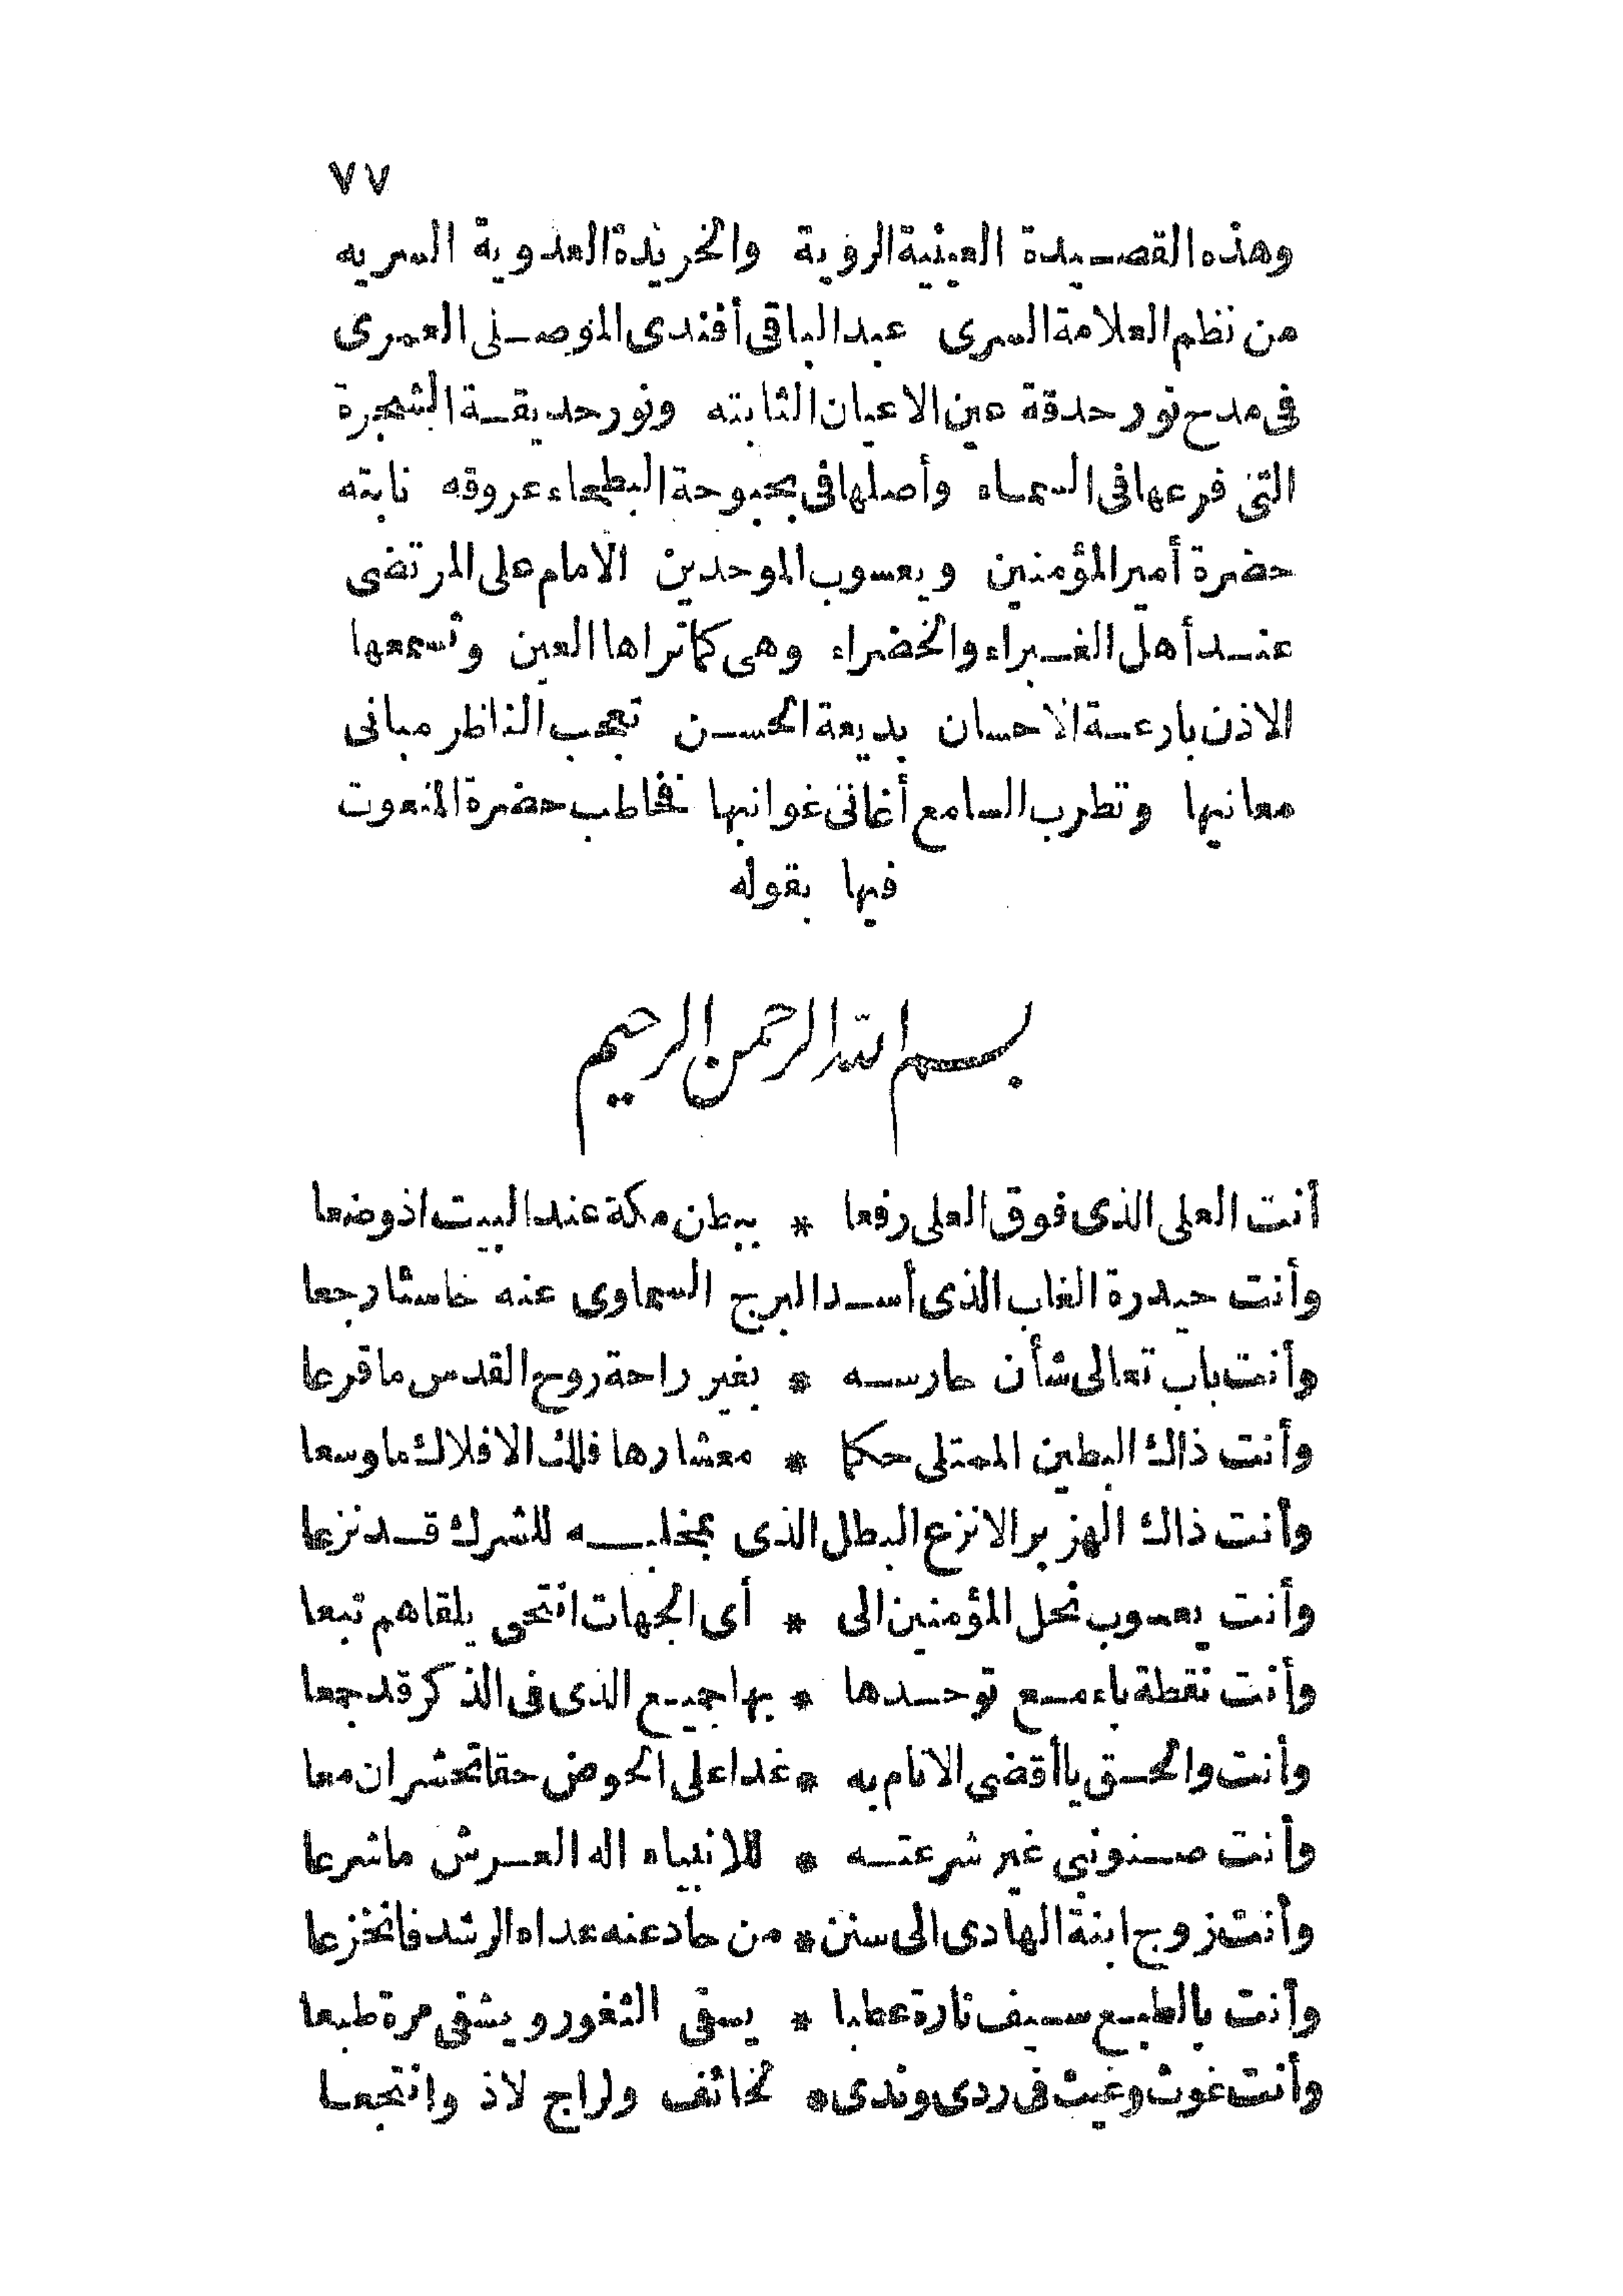 ٧٧
وهذه القصيدة العينية الروية والخريدة العدوية السريه
من نظم العلامة السرى عبد الباقى أفندى الموصلى العمرى
فى مدح نور حدقة عين الاعيان الثابته ونور حديقة الشجرة
التى فرعها فى السماء وأصلها فى بحبوحة البطحاء عروقه نابته
حضرة أمير المؤمنين ويعسوب الموحدين الامام على المرتضى
عند أهل الغبراء والخضراء وهى كما تراها العين وتسمعها
الاذن بارعة الاحسان بديعة الحسن تعجب الناظر مبانى
معانيها وتطرب السامع أغانى غوانيها تخاطب حضرة المنعوت
فيها بقوله
بسم الله الرحمن الرحيم
أنت العلى الذى فوق العلى رفعا * ببطن مكة عند البيت اذ وضعا
وأنت حيدرة الغاب الذى أسد البرج السماوى عنه خاسئا رجعا
وأنت باب تعالى شأن حارسه * بغير راحة روح القدس ما قرعا
وأنت ذاك البطين الممتلى حكما * معشارها فلك الافلاك ما وسعا
وأنت ذاك الهزبر الانزع البطل الذى بمخلبه للشرك قد نزعا
وأنت يعسوب نحل المؤمنين الى * أى الجهات انتحى يلقاهم تبعا
وأنت نقطة باء مع توحدها * بها جميع الذى فى الذكر قد جمعا
وأنت والحق يا أقضى الانام به * غدا على الحوض حقا تحشران معا
وأنت صنو نبى غير شرعته * للانبياء اله العرش ما شرعا
وأنت زوج ابنة الهادى الى سنن * من حاد عنه عداه الرشد فانخزعا
وأنت بالطبع سيف تارة عطبا * يسقى الثغور ويشفى مرة طبعا
وأنت غوث وغيث فى ردى وندى * لخائف ولراج لاذ وانتجعا